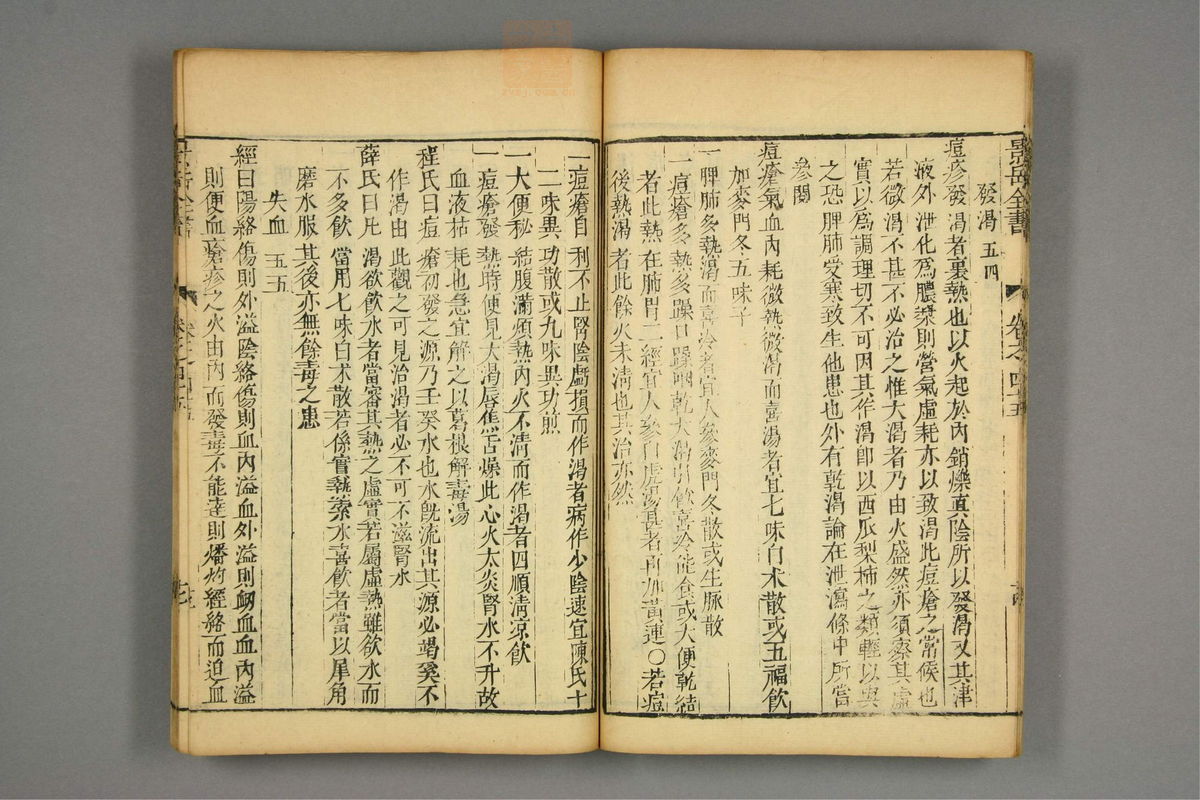 景岳全書
卷之四十五
發渴 五四
痘疹發渴者裏熱也以火起於內銷爍真陰所以發渴又其津
液外泄化爲膿漿則營氣虛耗亦以致渴此痘瘡之常候也
若微渴不甚不必治之惟大渴者乃由火盛然亦須察其虛
實以爲調理切不可因其作渴卽以西瓜梨柿之類輕以與
之恐脾肺受寒致生他患也外有乾渴論在泄瀉條中所當
參閱
痘瘡氣血內耗微熱微渴而喜湯者宜七味白术散或五福飲
加麥門冬五味子
一脾肺多熱渴而喜冷者宜人參麥門冬散或生脈散
一痘瘡多熱多躁口躁咽乾大渴引飲喜冷能食或大便乾結
者此熱在肺胃二經宜人參白虎湯甚者再加黃連○若痘
後熱渴者此餘火未淸也其治亦然
一痘瘡自利不止腎陰虧損而作渴者病作少陰速宜陳氏十
二味異功散或九味異功煎
一大便秘結腹滿煩熱內火不淸而作渴者四順淸凉飲
一痘瘡發熱時便見大渴唇焦舌燥此心火太炎腎水不升故
血液枯耗也急宜解之以葛根解毒湯
程氏曰痘瘡初發之源乃壬癸水也水旣流出其源必竭奚不
作渴由此觀之可見治渴者必不可不滋腎水
薛氏曰凡渴欲飲水者當審其熱之虛實若屬虛熱雖飲水而
不多飲當用七味白术散若係實熱索水喜飲者當以犀角
磨水服其後亦無餘毒之患
失血 五五
經曰陽絡傷則外溢陰絡傷則血內溢血外溢則衂血血內溢
則便血瘡疹之火由內而發毒不能達則燔灼經絡而迫血